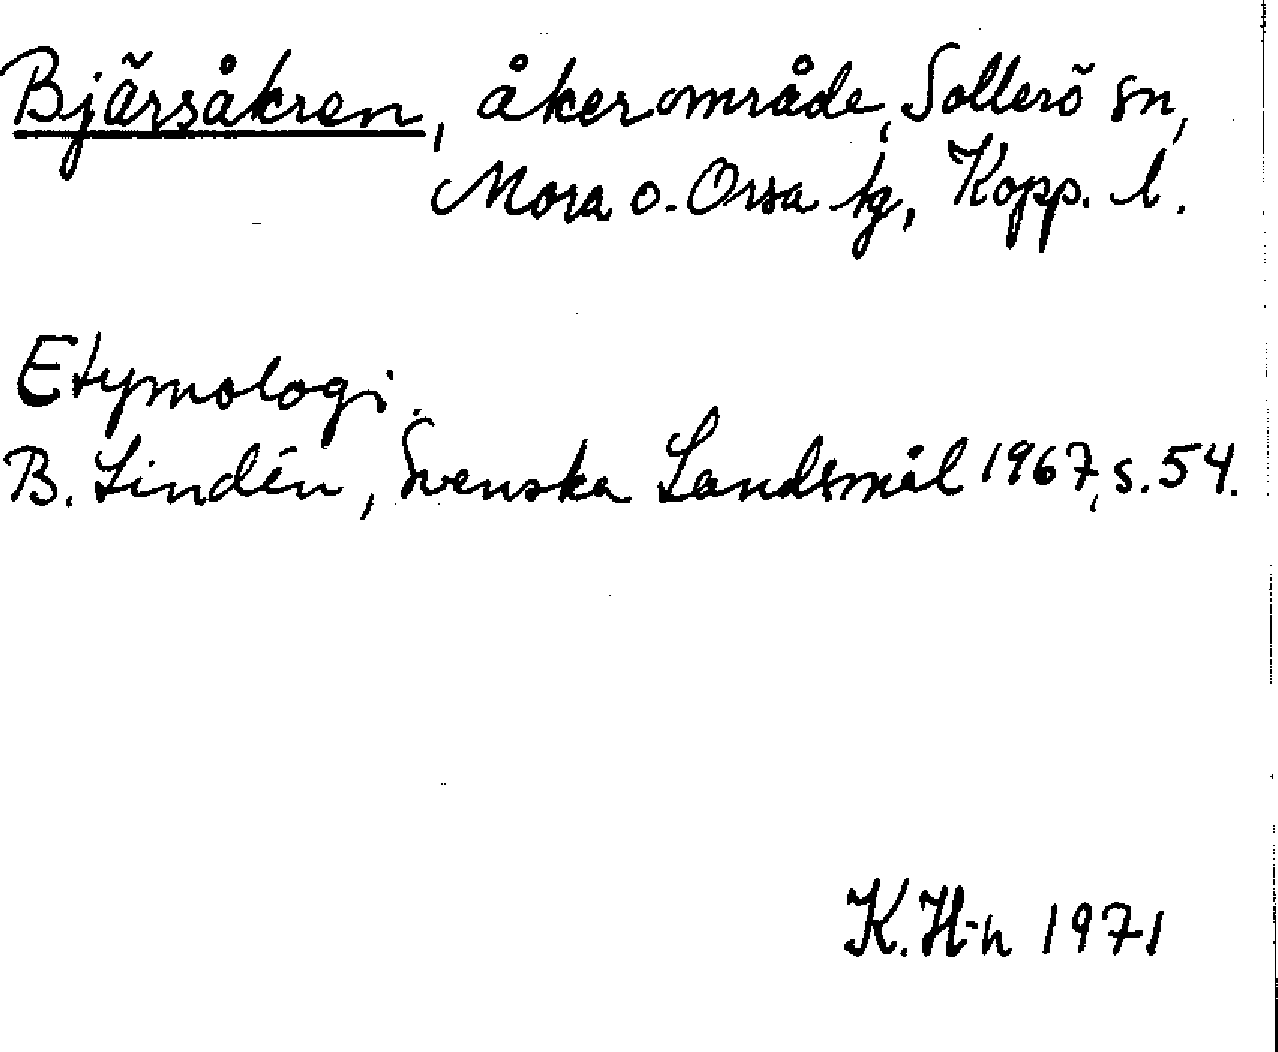 Bjärsåkren, åkerområde, Sollerö sn,
Mora o. Orsa tg, Kopp. l.
Etymologi.
B. Lindén, Svenska Landsmål 1967, s. 54.
K. H-n 1971